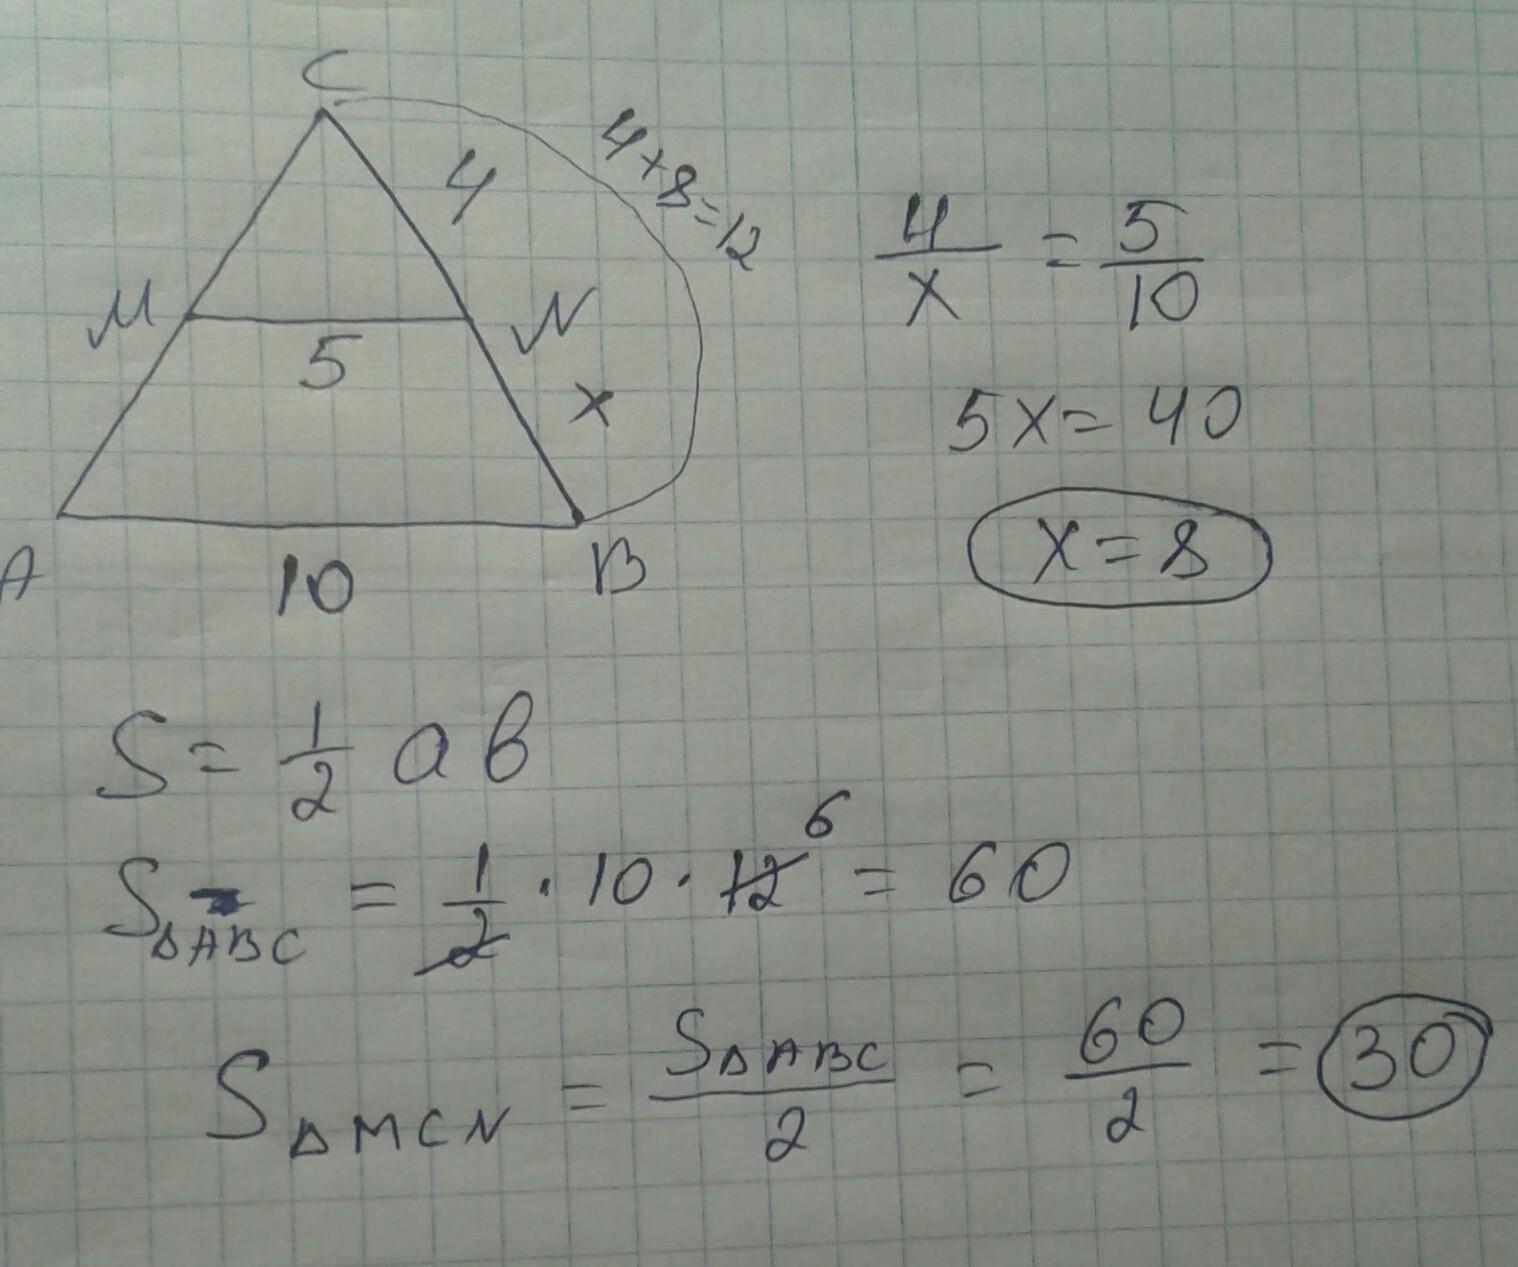 C
4
4+8=12
M
N
5
x
A
10
B
4/x = 5/10
5x = 40
x = 8
S = 1/2 ab
S△ABC = 1/2 · 10 · 12 6 = 60
S△MCN = S△ABC/2 = 60/2 = 30